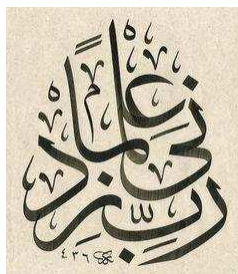 رَبِّ زِدْنِي عِلْمًا
٤٣٦